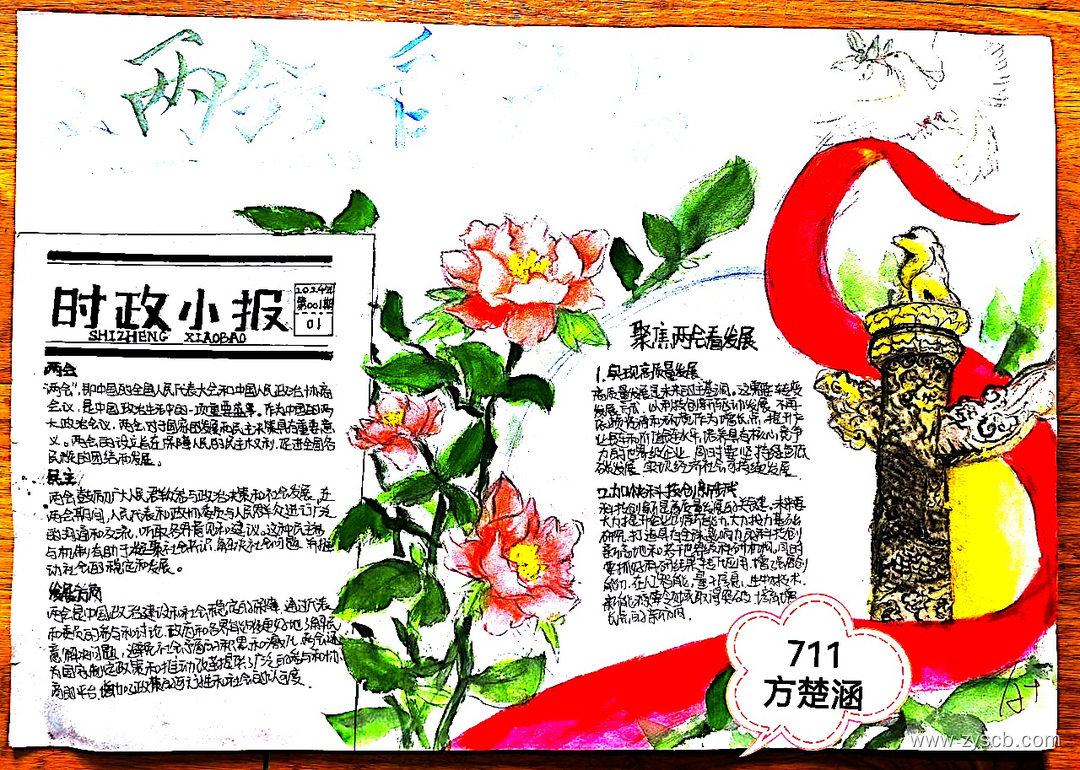 两会
时政小报
2024年
第001期
01
SHIZHENG XIAOBAO
两会
"两会",即中国的全国人民代表大会和中国人民政治协商
会议,是中国政治生活中的一项重要盛事。作为中国的两
大政治会议,两会对于国家的发展和民主决策具有重要意
义。两会的设立旨在保障人民的民主权利,促进全国各
民族的团结和发展。
民主
两会鼓励广大人民群众参与政治决策和社会发展。在
两会期间,人民代表和政协委员与人民群众进行广泛
的沟通和交流,听取各界意见和建议。这种民主参
与机制有助于凝聚社会共识,解决社会问题,并推
动社会的稳定和发展。
发展方向
两会是中国政治建设和社会稳定的保障。通过代表
和委员的参与和讨论,政府和各界
解决问题,避免社会矛盾的积累和激化。两会还
为国家制定政策和推动改革提供了广泛的参与和协
商的平台,增加了政策的可行性和社会的认可度。
聚焦两会看发展
1.实现高质量发展
高质量发展是未来的主基调。这需要转变
发展方式,以科技创新驱动发展,不再
业链和价值链水平,培养具有核心竞争
力的世界级企业。同时要坚持绿色低
碳发展,实现经济社会可持续发展。
2.加快科技创新
科技创新是高质量发展的关键。未来要
大力提升企业创新能力,大力投入基础
研究,打造具有全球影响力的科技创
新高地和若干
要抓好科研成果转化应用,增强原创
能力,在人工智能、量子信息、生物技术、
711
方楚涵
www.zyscb.com